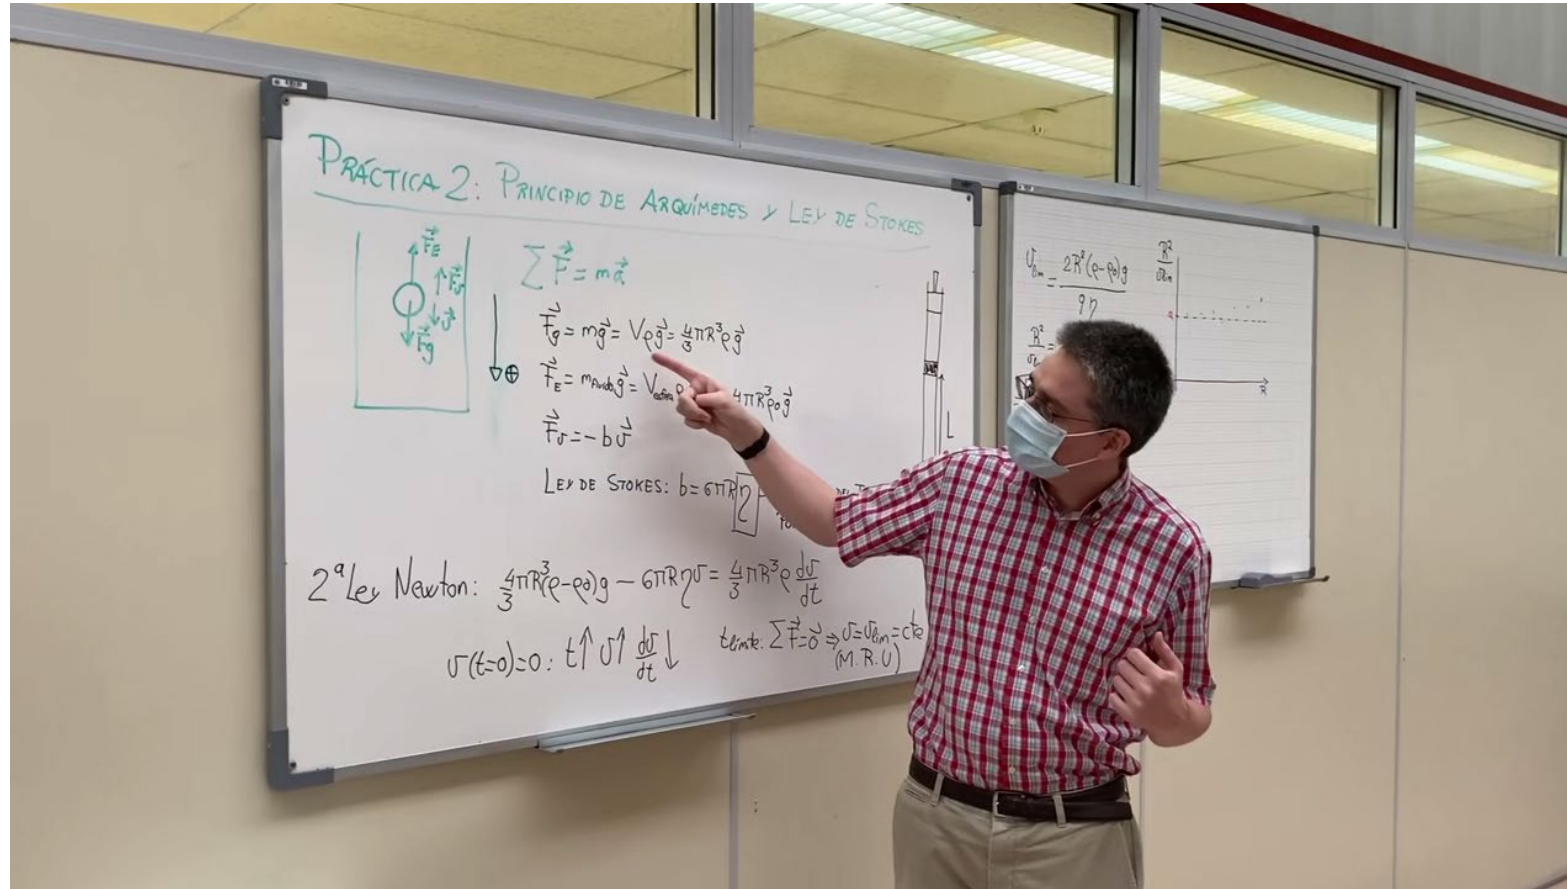 PRÁCTICA 2: PRINCIPIO DE ARQUÍMEDES Y LEY DE STOKES
F⃗_E
F⃗_v
v⃗
F⃗_g
⊕
∑ F⃗ = m a⃗
F⃗_g = m g⃗ = V ρ g⃗ = 4/3 π R³ ρ g⃗
F⃗_E = m_fluido g⃗ = V_esfera ρ 4 π R³ ρ₀ g⃗
F⃗_v = - b v⃗
LEY DE STOKES: b = 6 π R η
2ª Ley Newton: 4/3 π R³ (ρ - ρ₀) g - 6 π R η v = 4/3 π R³ ρ dv/dt
v(t=0)=0: t↑ v↑ dv/dt ↓
t límite: ∑ F⃗ = 0⃗ ⇒ v = v_lím = cte
(M.R.U)
L
v_lím = 2R²(ρ-ρ₀)g / 9η
R²/v_lím
R² =
R